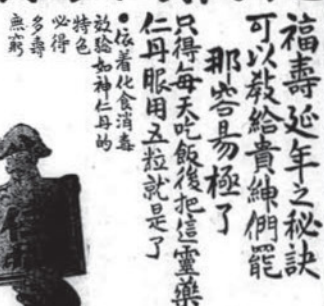 福壽延年之秘訣
可以敎給貴紳們罷
那容易極了
只得每天吃飯後把這靈藥
仁丹服用五粒就是了
●依着化食消毒
效驗如神仁丹的
特色
必得
多壽
無窮